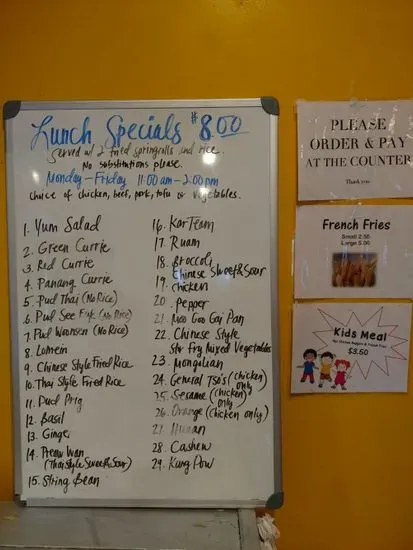 Lunch Specials $8.00
Served w/ 2 fried springrolls and rice.
No substitutions please.
Monday-Friday 11:00am-2:00pm
Choice of chicken, beef, pork, tofu or vegetables.
1. Yum Salad
2. Green Currie
3. Red Currie
4. Panang Currie
5. Pud Thai (No Rice)
6. Pud See Eye (No Rice)
7. Pud Woonsen (No Rice)
8. Lomein
9. Chinese Style Fried Rice
10. Thai Style Fried Rice
11. Pud Prig
12. Basil
13. Ginger
14. Preow Wan
(Thai style Sweet & Sour)
15. String Bean
16. Kar Team
17. Ruam
18. Broccoli
19. Chinese Sweet & Sour
Chicken
20. Pepper
21. Moo Goo Gai Pan
22. Chinese Style
Stir Fry Mixed Vegetables
23. Mongolian
24. General Tso's (Chicken)
only
25. Sesame (Chicken)
only
26. Orange (Chicken only)
27. Hunan
28. Cashew
29. Kung Pow
PLEASE
ORDER & PAY
AT THE COUNTER
Thank you
French Fries
Small 2.50
Large 5.00
Kids Meal
$3.50